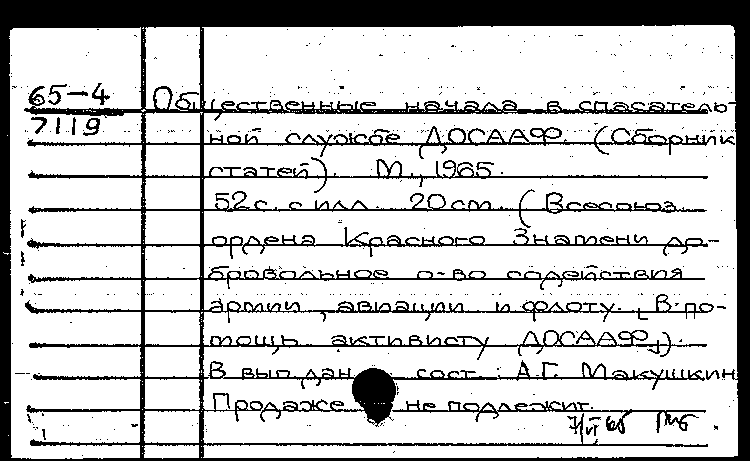 65-4 Общественные начала в спасатель-
7119 ной службе ДОСААФ. (Сборник
статей). М., 1965.
52 с. с илл. 20 см. (Всесоюз.
ордена Красного Знамени до-
бровольное о-во содействия
армии, авиации и флоту. [В по-
мощь активисту ДОСААФ]).
В вып. дан. сост.: А.Г. Макушкин
Продаже не подлежит.